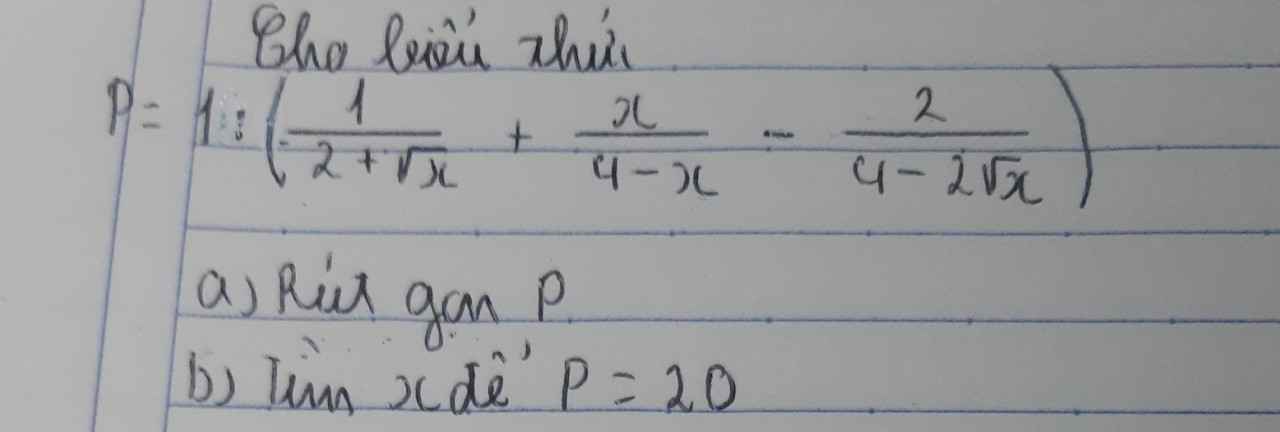 Cho biểu thức
P = 1 : ( 1/(2 + √x) + x/(4 - x) - 2/(4 - 2√x) )
a) Rút gọn P
b) Tìm x để P = 20